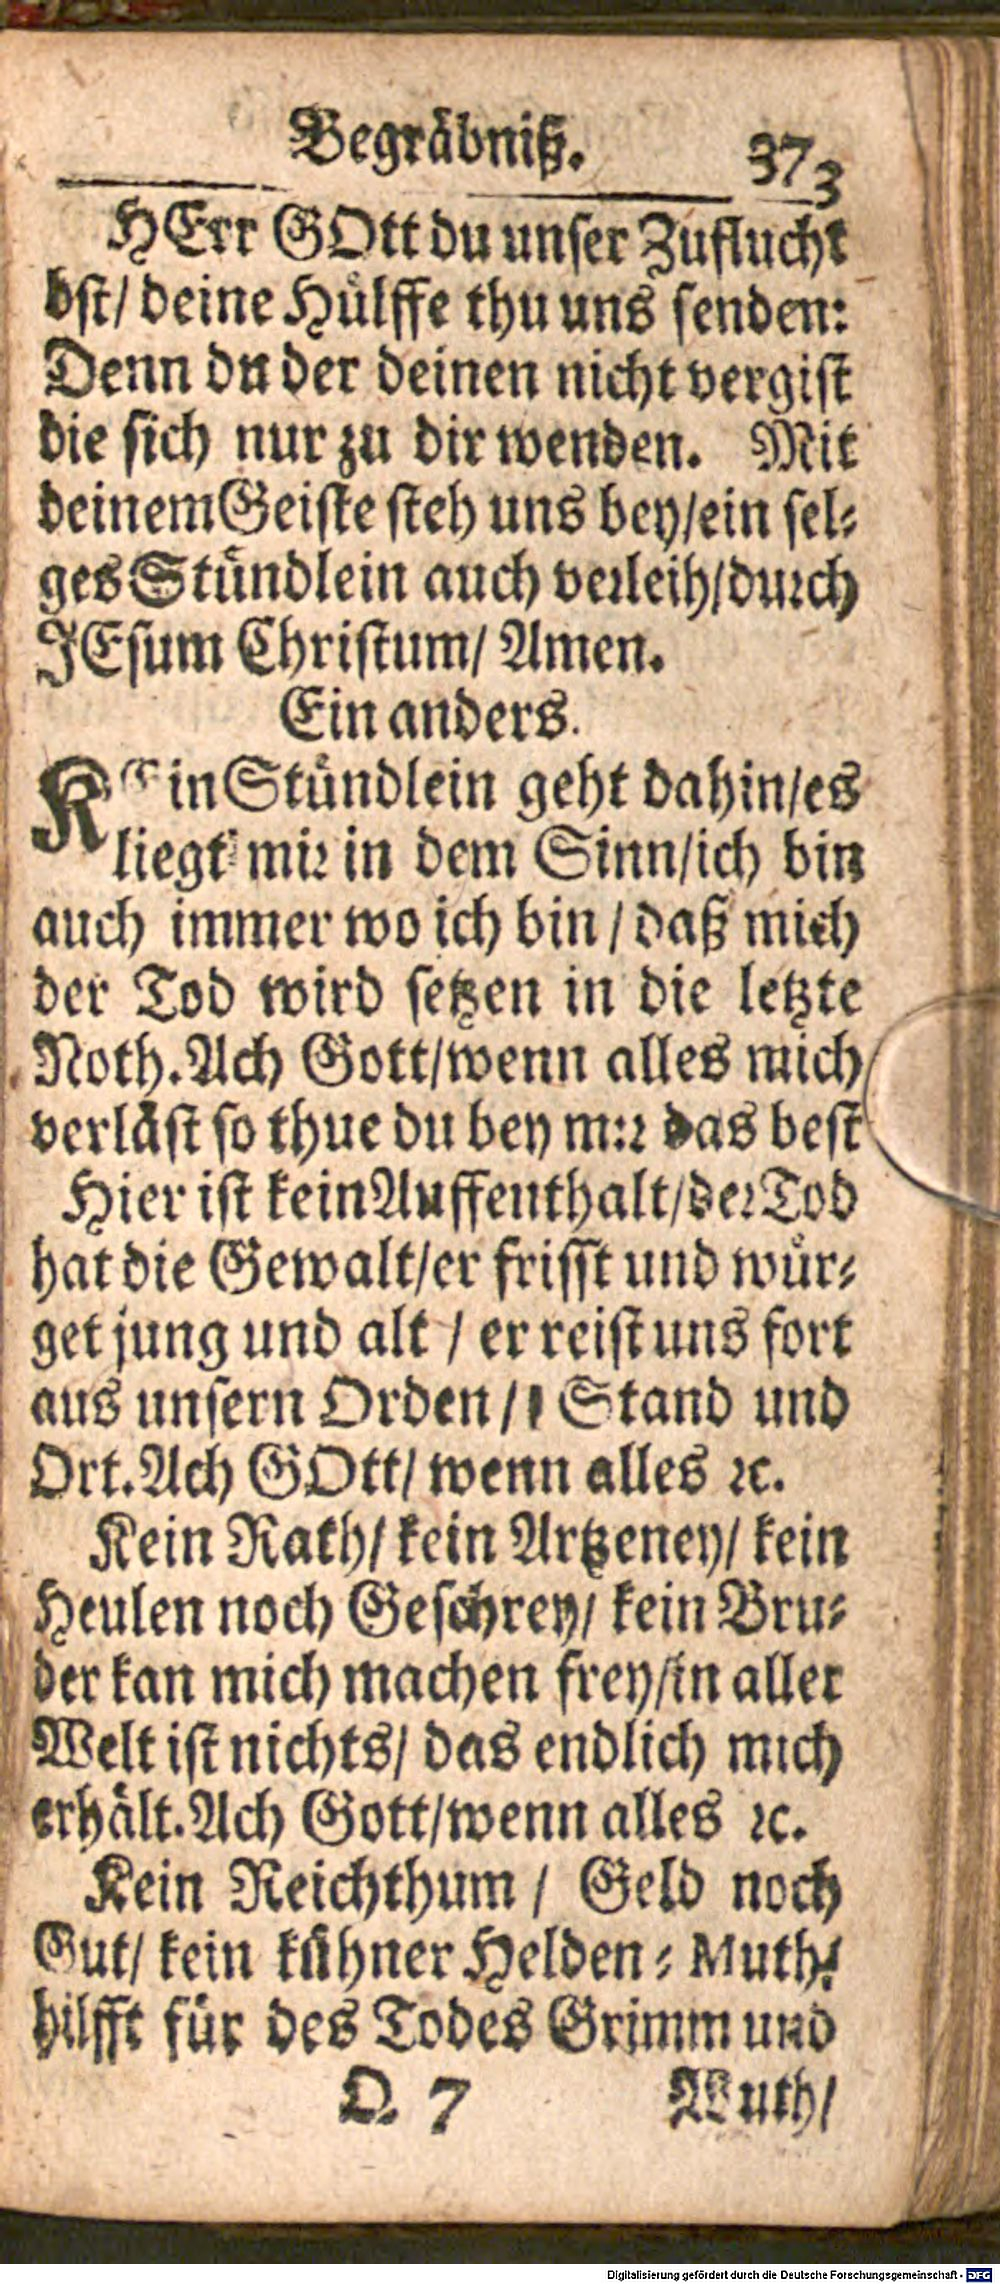 Begräbniß. 373
HErr GOtt du unser Zuflucht
bst/ deine Hülffe thu uns senden:
Denn du der deinen nicht vergist
die sich nur zu dir wenden. Mit
deinem Geiste steh uns bey/ein sel-
ges Stündlein auch verleih/durch
JEsum Christum/ Amen.
Ein anders.
KEin Stündlein geht dahin/es
liegt mir in dem Sinn/ich bin
auch immer wo ich bin / daß mich
der Tod wird setzen in die letzte
Noth. Ach Gott/wenn alles mich
verläst so thue du bey mir das best
Hier ist kein Auffenthalt/der Tod
hat die Gewalt/er frisst und wür-
get jung und alt / er reist uns fort
aus unsern Orden/ Stand und
Ort. Ach GOtt/ wenn alles ꝛc.
Kein Rath/ kein Artzeney/ kein
Heulen noch Geschrey/ kein Bru-
der kan mich machen frey/in aller
Welt ist nichts/ das endlich mich
erhält. Ach Gott/wenn alles ꝛc.
Kein Reichthum / Geld noch
Gut/ kein kühner Helden-Muth/
hilfft für des Todes Grimm und
Q 7 Wuth/
Digitalisierung gefördert durch die Deutsche Forschungsgemeinschaft - DFG